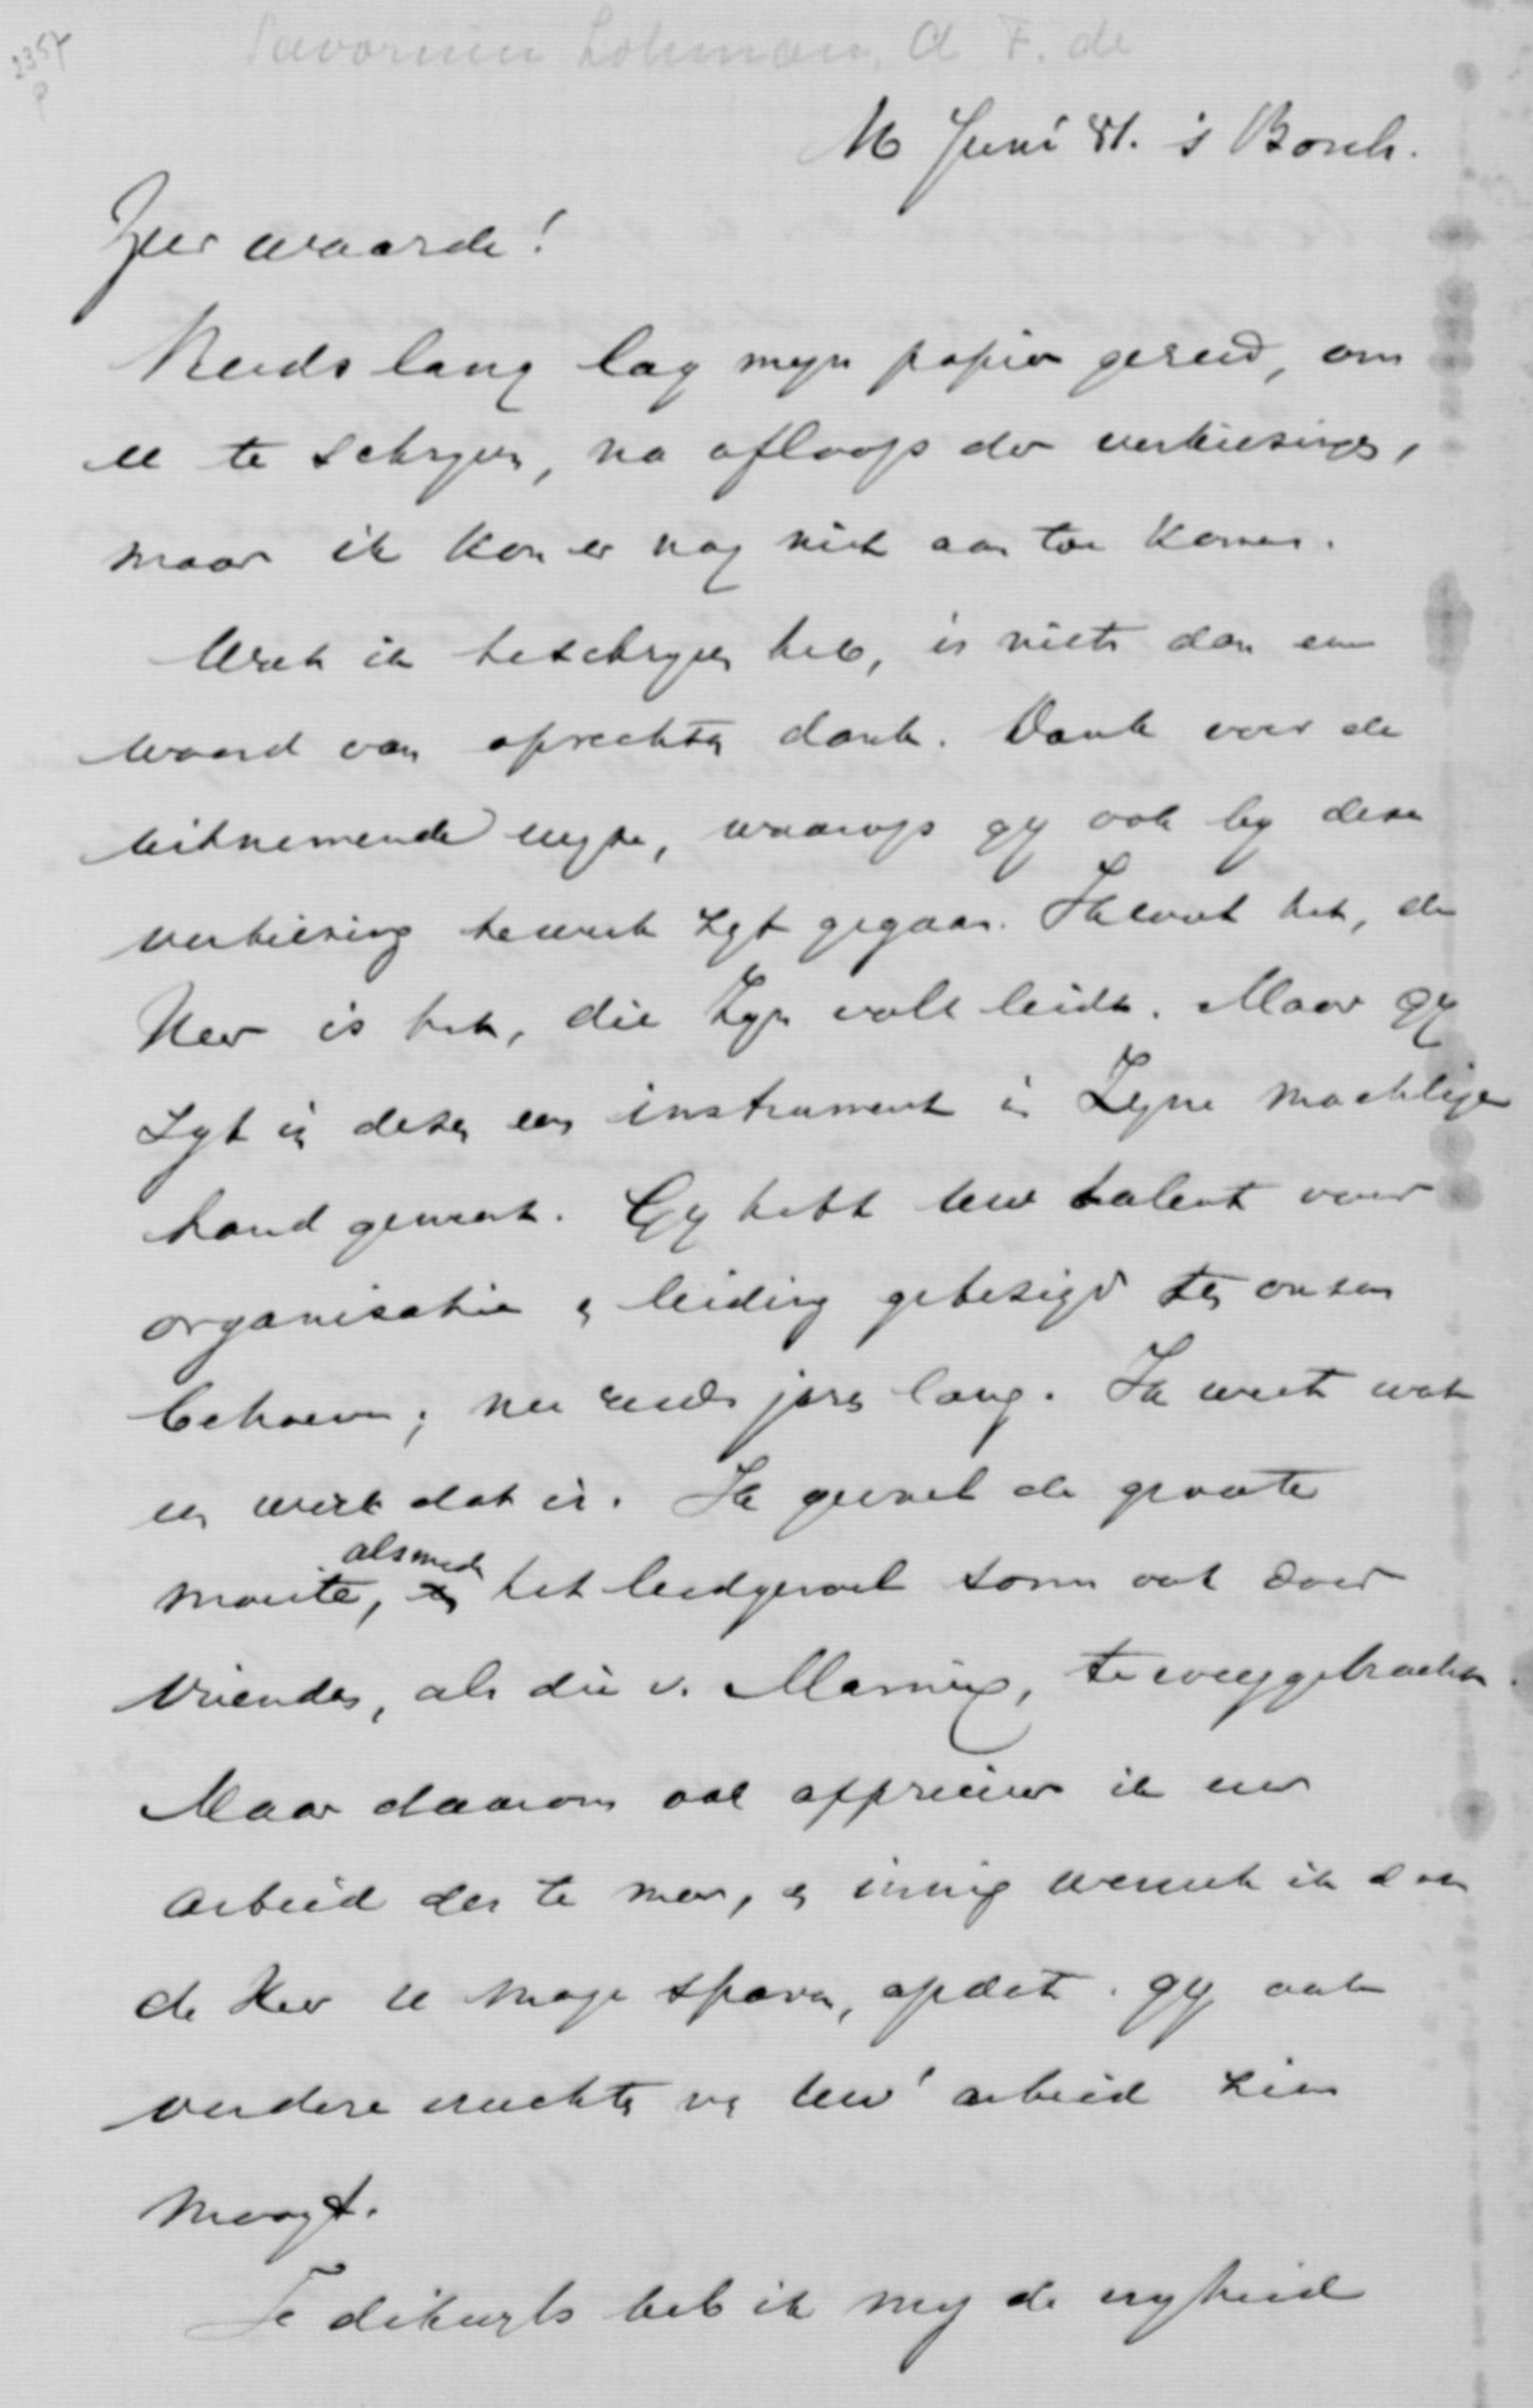 2357
P
Savornin Lohman, A F. de
16 Juni 81. 's Bosch.
Zeer waarde!
Reeds lang lag mijn papier gereed, om
u te schrijven, na afloop der verkiezingen,
maar ik kon er nog niet aan toe komen.
Wat ik te schrijven heb, is niets dan een
woord van oprechten dank. Dank voor de
uitnemende wijze, waarop gij ook bij deze
verkiezing te werk zijt gegaan. Ik weet het, de
Heer is het, die Zijn volk leidt. Maar gij
zijt in dezen een instrument in Zijne machtige
hand geweest. Gij hebt uw talent voor
organisatie en leiding gebezigd ten onzen
behoeve; nu reeds jaren lang. Ik weet wat
een werk dat is. Ik gevoel de groote
alsmede
moeite, het leedgevoel soms ook door
vrienden, als die v. Marnix, teweeggebracht.
Maar daarom ook apprecieer ik uw
arbeid des te meer, en innig wensch ik dat
de Heer u moge sparen, opdat gij ook
verdere vruchten van uw' arbeid zien
moogt.
Te dikwijls heb ik mij de vrijheid